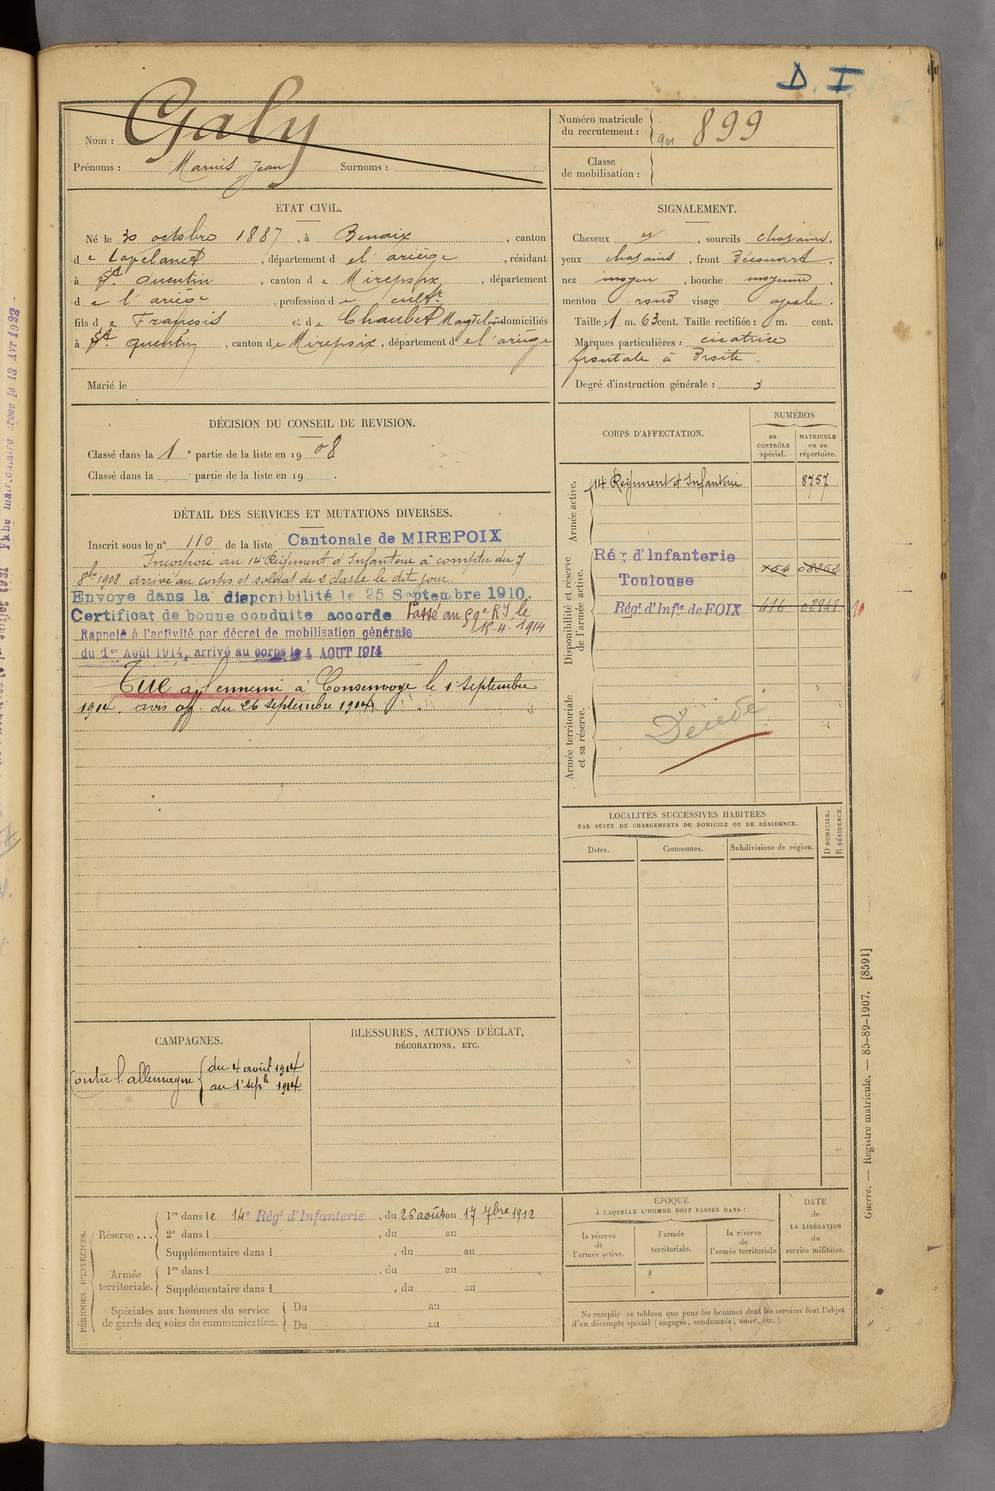 D. I.
Galy
Nom :
Prénoms : Marius Jean Surnoms :
Numéro matricule
du recrutement : 899
Classe
de mobilisation :
ÉTAT CIVIL.
Né le 30 octobre 1887, à Benaix, canton
de Lavelanet, département de l'ariège, résidant
à St quentin, canton de Mirepoix, département
de l'ariège, profession de cultr
fils de François et de Chaubet Magdeleine domiciliés
à St quentin, canton de Mirepoix, département de l'ariège
Marié le
SIGNALEMENT.
Cheveux et, sourcils chatains,
yeux chatains, front Découvert,
nez moyen, bouche moyenne,
menton rond visage ovale.
Taille : 1 m. 63 cent. Taille rectifiée : m. cent.
Marques particulières : cicatrice
frontale à Droite.
Degré d'instruction générale : 3
DÉCISION DU CONSEIL DE REVISION.
Classé dans la 1e partie de la liste en 1908
Classé dans la partie de la liste en 19 .
CORPS D'AFFECTATION.
NUMÉROS
au
CONTRÔLE
spécial.
MATRICULE
ou au
répertoire.
Armée active.
14 Régiment d'Infanterie 8757
Disponibilité et réserve
de l'armée active.
Rég. d'Infanterie
Toulouse
Régt d'Infie de FOIX 416
Armée territoriale
et sa réserve.
Décédé
DÉTAIL DES SERVICES ET MUTATIONS DIVERSES.
Inscrit sous le n° 110 de la liste Cantonale de MIREPOIX
Incorporé au 14e Régiment d'Infanterie à compter du 7
8bre 1908 arrivé au corps et soldat de 2e classe le dit jour.
Envoyé dans la disponibilité le 25 Septembre 1910.
Certificat de bonne conduite accordé Passé au 59e RI le
15-4-1914
Rappelé à l'activité par décret de mobilisation générale
du 1er Août 1914, arrivé au corps le 4 AOUT 1914
Tué à l'ennemi à Consenvoye le 1er septembre
1914. avis off. du 26 septembre 1914.
LOCALITÉS SUCCESSIVES HABITÉES
PAR SUITE DE CHANGEMENTS DE DOMICILE OU DE RÉSIDENCE.
Dates. Communes. Subdivisions de région.
D DOMICILE.
R RÉSIDENCE.
CAMPAGNES.
Contre l'allemagne du 4 août 1914
au 1er septb 1914
BLESSURES, ACTIONS D'ÉCLAT,
DÉCORATIONS, ETC.
PÉRIODES D'EXERCICES.
Réserve ... 1re dans le 14e Régt d'Infanterie, du 26 août au 17 7bre 1912
2e dans l , du au
Supplémentaire dans l , du au
Armée
territoriale. 1re dans l , du au
Supplémentaire dans l , du au
Spéciales aux hommes du service
de garde des voies de communication. Du au
Du au
ÉPOQUE
À LAQUELLE L'HOMME DOIT PASSER DANS :
la réserve
de
l'armée active.
l'armée
territoriale.
la réserve
de
l'armée territoriale
DATE
de
LA LIBÉRATION
du
service militaire.
Ne remplir ce tableau que pour les hommes dont les services font l'objet
d'un décompte spécial (engagés, condamnés, omis, etc.).
Guerre. — Registre matricule. — 85-89-1907. [8591]